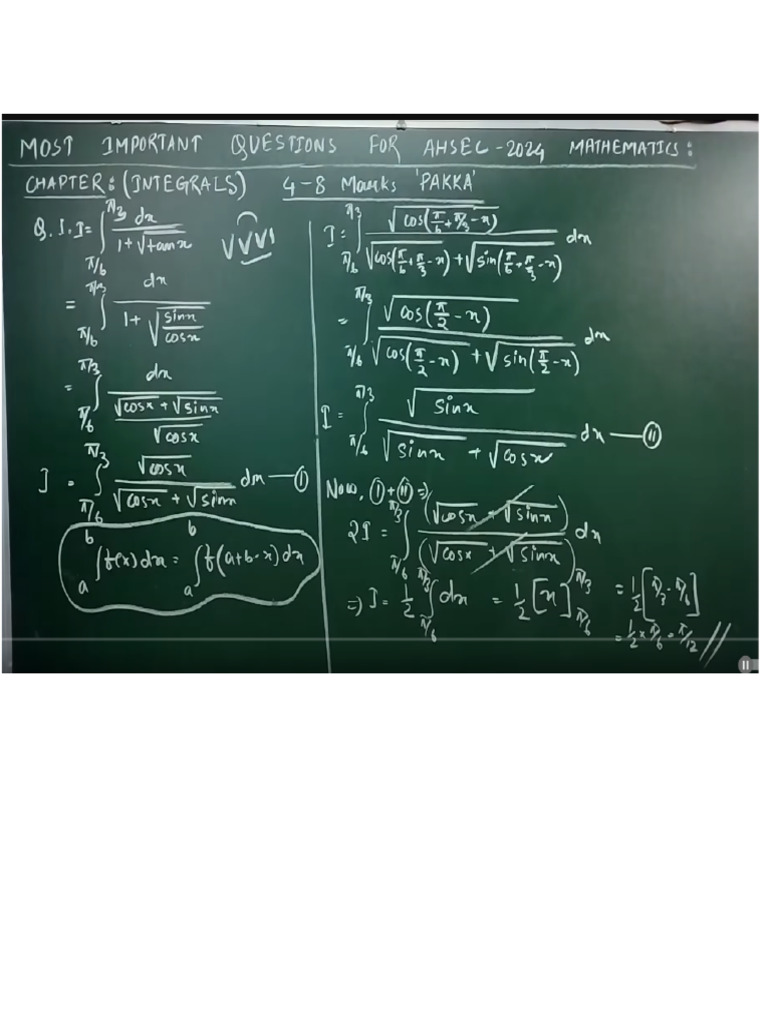 MOST IMPORTANT QUESTIONS FOR AHSEC-2024 MATHEMATICS:
CHAPTER: (INTEGRALS) 4-8 Marks 'PAKKA'
Q.1. I = ∫_{π/6}^{π/3} dx / (1+√tanx) VVVI
= ∫_{π/6}^{π/3} dx / (1+√(sinx/cosx))
= ∫_{π/6}^{π/3} dx / ((√cosx + √sinx)/√cosx)
I = ∫_{π/6}^{π/3} √cosx / (√cosx + √sinx) dx — (I)
∫_a^b f(x)dx = ∫_a^b f(a+b-x)dx
I = ∫_{π/6}^{π/3} √cos(π/6+π/3-x) / (√cos(π/6+π/3-x) + √sin(π/6+π/3-x)) dx
= ∫_{π/6}^{π/3} √cos(π/2-x) / (√cos(π/2-x) + √sin(π/2-x)) dx
I = ∫_{π/6}^{π/3} √sinx / (√sinx + √cosx) dx — (II)
Now, (I)+(II) ⇒
2I = ∫_{π/6}^{π/3} (√cosx + √sinx) / (√cosx + √sinx) dx
⇒ I = 1/2 ∫_{π/6}^{π/3} dx = 1/2 [x]_{π/6}^{π/3} = 1/2 [π/3 - π/6]
= 1/2 × π/6 = π/12 //